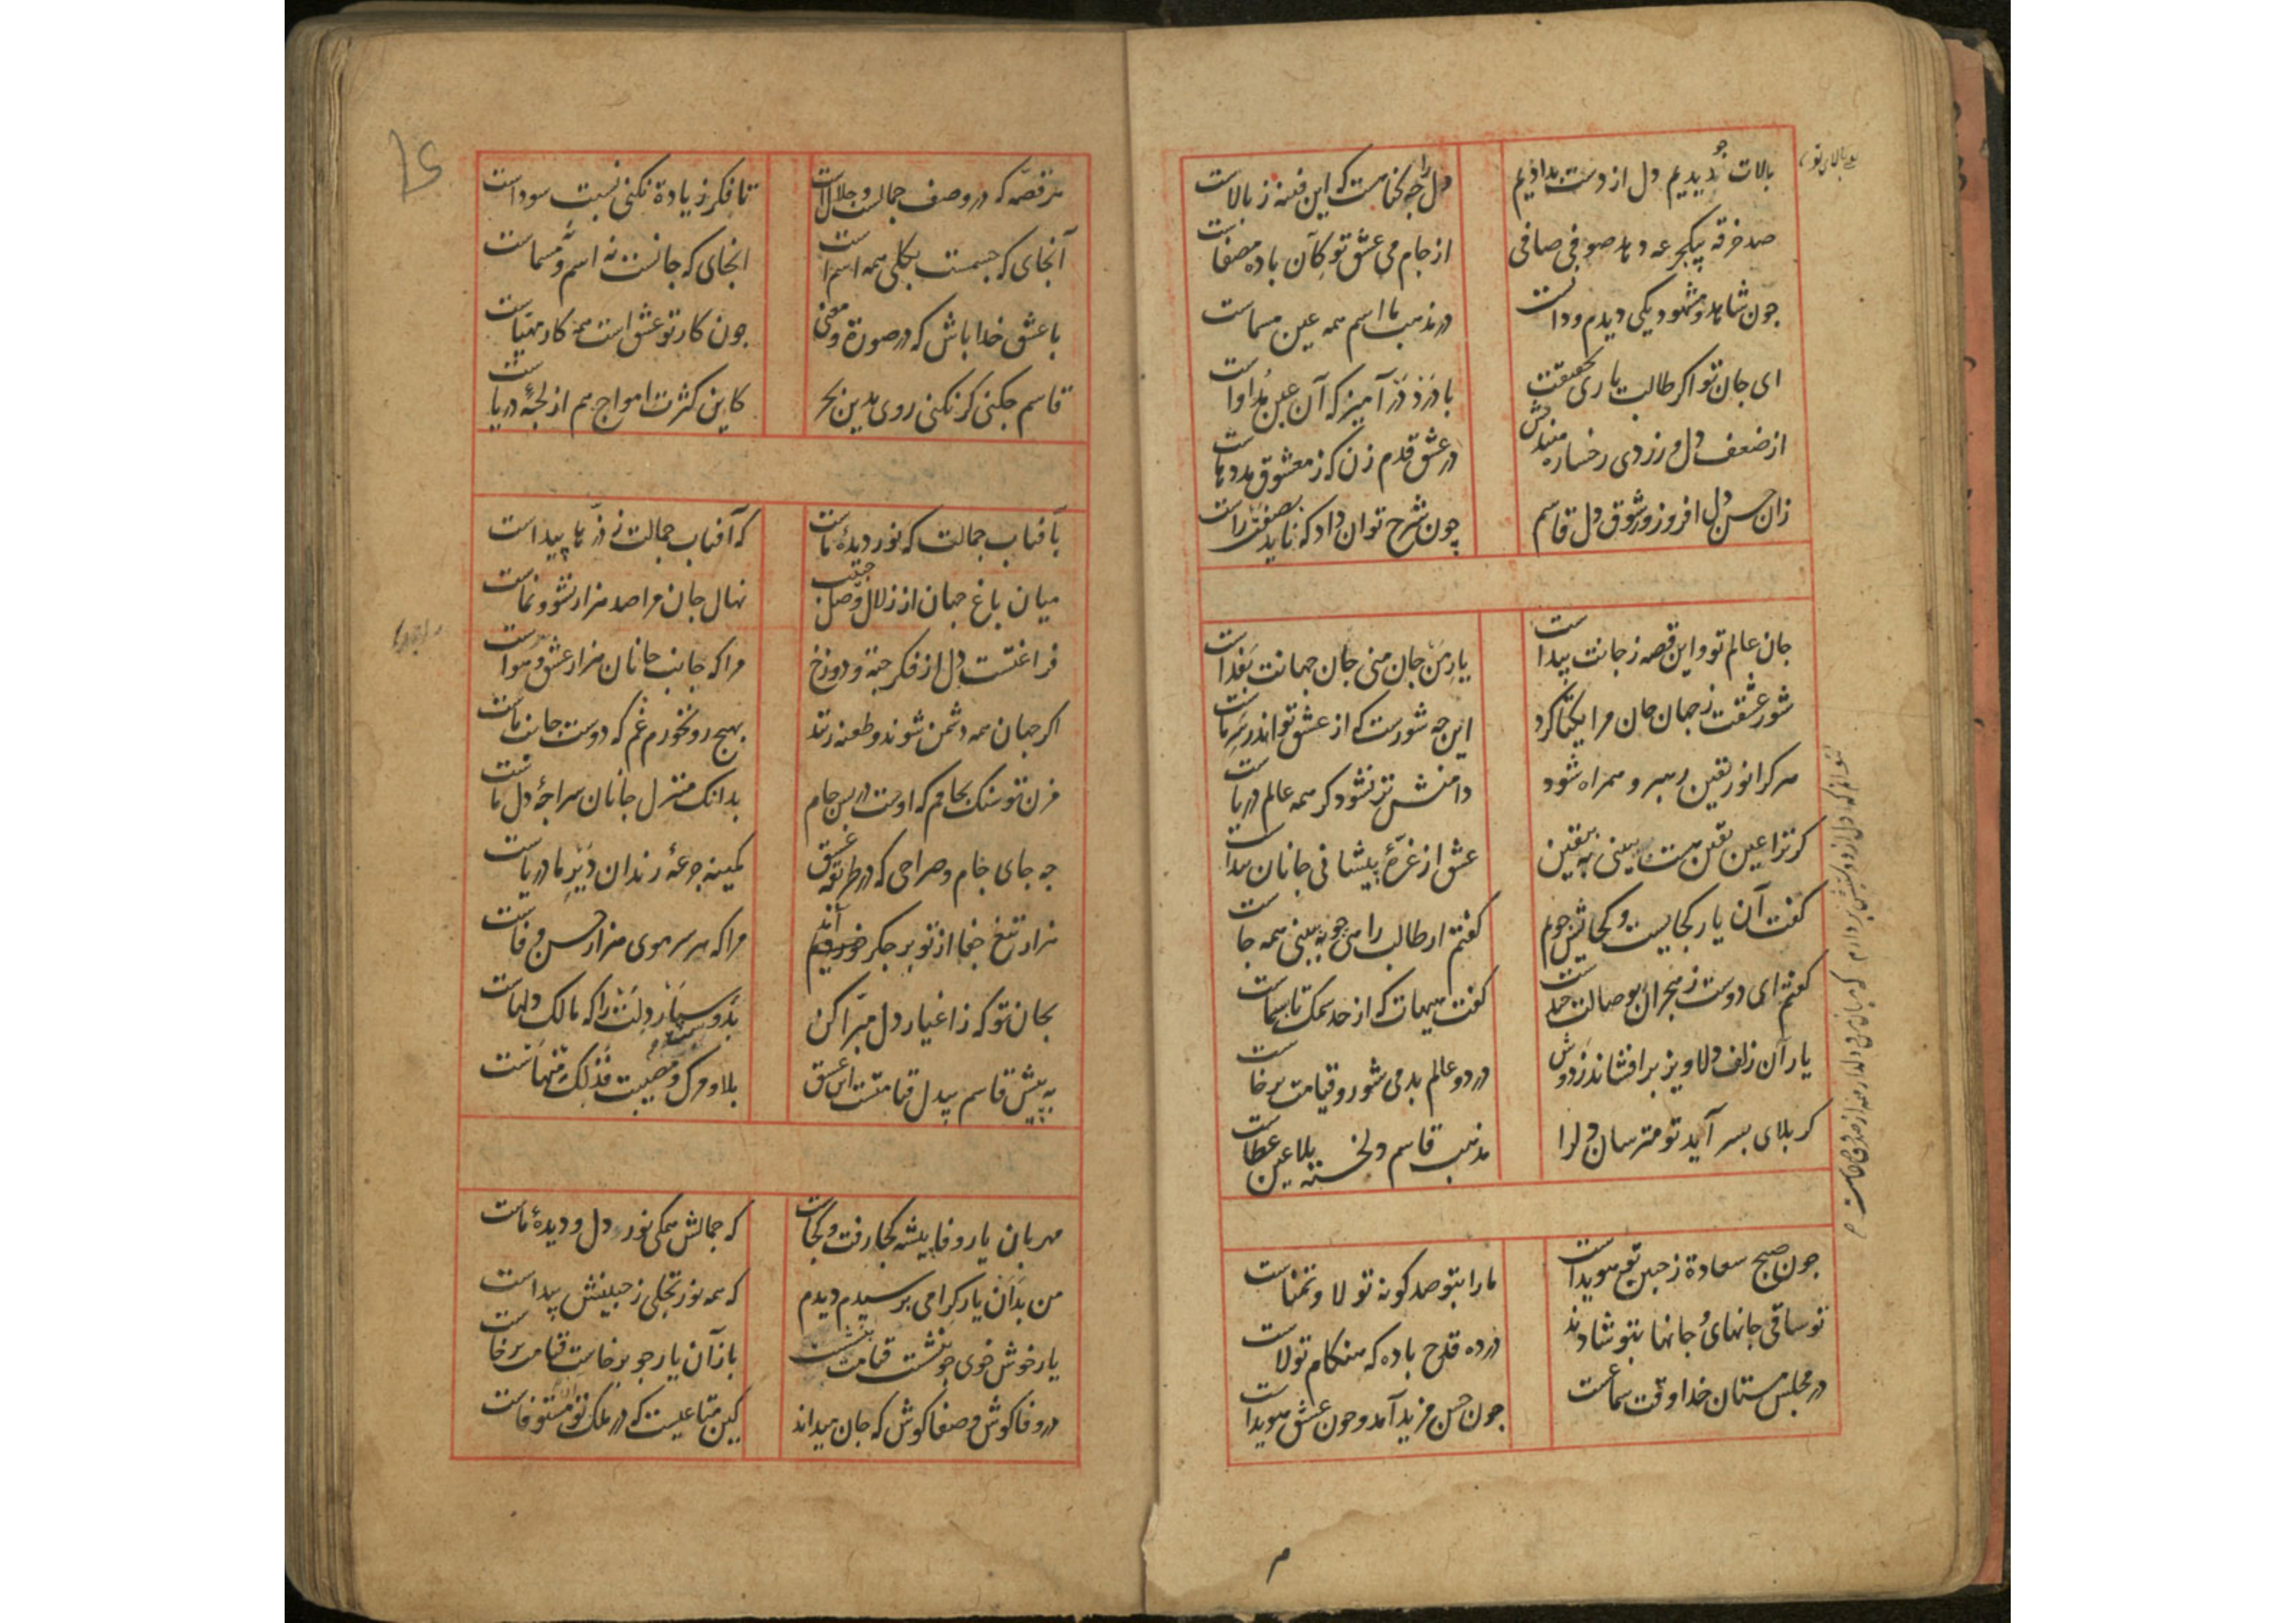 بالات چو دیدیم دل از دست بدادیم
دل را چه کناهست که این فتنه ز بالاست
صد خرقه بیکجرعه دهد صوفی صافی
از جام می عشق تو کآن باده مصفاست
جون شاهد و مشهود یکی دیدم و دانست
در مذهب ما اسم همه عین مسماست
ای جان تو اکر طالب یاری بحقیقت
با دَرد دَرآمیز که آن عین مُداواست
از ضعف دل و زردی رخساره میندیش
در عشق قدم زن که ز معشوق مددهاست
زان حسن دل افروز و شوق دل قاسم
چون شرح توان داد که ناید بصفت راست
جان عالم تو و این قصه ز جانت پیداست
یارِ مَن جان منی جان جهانت بفداست
شور عشقت ز جهان جان مرا یکتا کرد
این جه شورست که از عشق تو اندر سرِ ماست
هر کرا نور یقین رهبر و همراه شود
دامنش تر نشود کر همه عالم دریاست
کر ترا عین یقین هست ببینی به یقین
عشق از غرّهٔ پیشانی جانان پیداست
کفت آن یار کجاییست و کجااش جویم
کفتم ار طالب رامی جو به ببینی همه جاست
کفتم ای دوست ز هجران بوصالت حدست
کفت هیهات که از حد سمک تا بسماست
یار آن زلف دلاویز برافشاند ز دوش
در دو عالم بدمی شور و قیامت برخاست
کر بلای بسر آید تو مترسان دل را
مذهب قاسم دلخسته بلا عین عطاست
جون صبح سعادة ز جبین تو هویداست
ما را بتو صد کونه تولا و تمناست
تو ساقی جانهایُ جانها بتو شادند
در ده قدح باده که هنکام تولاست
در مجلس مستان خدا وقت سماعست
جون حسن مزید آمد و جون عشق هویداست
هر قصّه که در وصف جمالست و جلالست
تا فکر زیادة نکنی نسبت سوداست
آنجای که جسمست بکلی همه اسم است
انجای که جانست نه اسم و نه مسماست
با عشق خدا باش که در صورة و معنی
جون کار تو عشق است همه کار مهیّاست
قاسم جکنی کر نکنی روی بدین بحر
کاین کثرت امواج هم از لجّهٔ دریاست
بآفتاب جمالت که نور دیدهٔ ماست
که آفتاب جمالت ز ذرّها پیداست
میان باغ جهان از زلال وصل حبیب
نهال جان مرا صد هزار نشو و نماست
فراغتست دل از فکر جنة و دوزخ
مرا که جانب جانان هزار عشق و هواست
اکر جهان همه دشمن شوند و طعنه زنند
بهیج رو نخورم غم که دوست جانب ماست
مزن تو سنک بجامم که اوست در پس جام
بدانک منزل جانان سراجهٔ دل ماست
جه جای جام و صراحی که در طریقه عشق
کمینه جرعهٔ رندان دَیْرِ ما دریاست
هزار تیغ جفا از تو بر جکر خوردیم
مرا که هر سر موی هزار حسن و وفاست
بجان تو که ز اغیار دل مبرّا کن
بدو سپار دلت را که مالک دلهاست
به پیش قاسم بیدل قیامتست این عشق
بلا و مرک و مصیبت فذلک و منهاست
مهربان یار وفا پیشه کجا رفت و کجاست
که جمالش همکی نور دل و دیدهٔ ماست
من بدان یار کرامی برسیدم دیدم
که همه نور تجلی ز جبینش پیداست
یار خوش خوی جو بنشست قیامت بنشست
باز آن یار جو برخاست قیامت برخاست
در وفا کوش و صفا کوش که جان میداند
کین متاعیست که در ملک تو مستوفاست